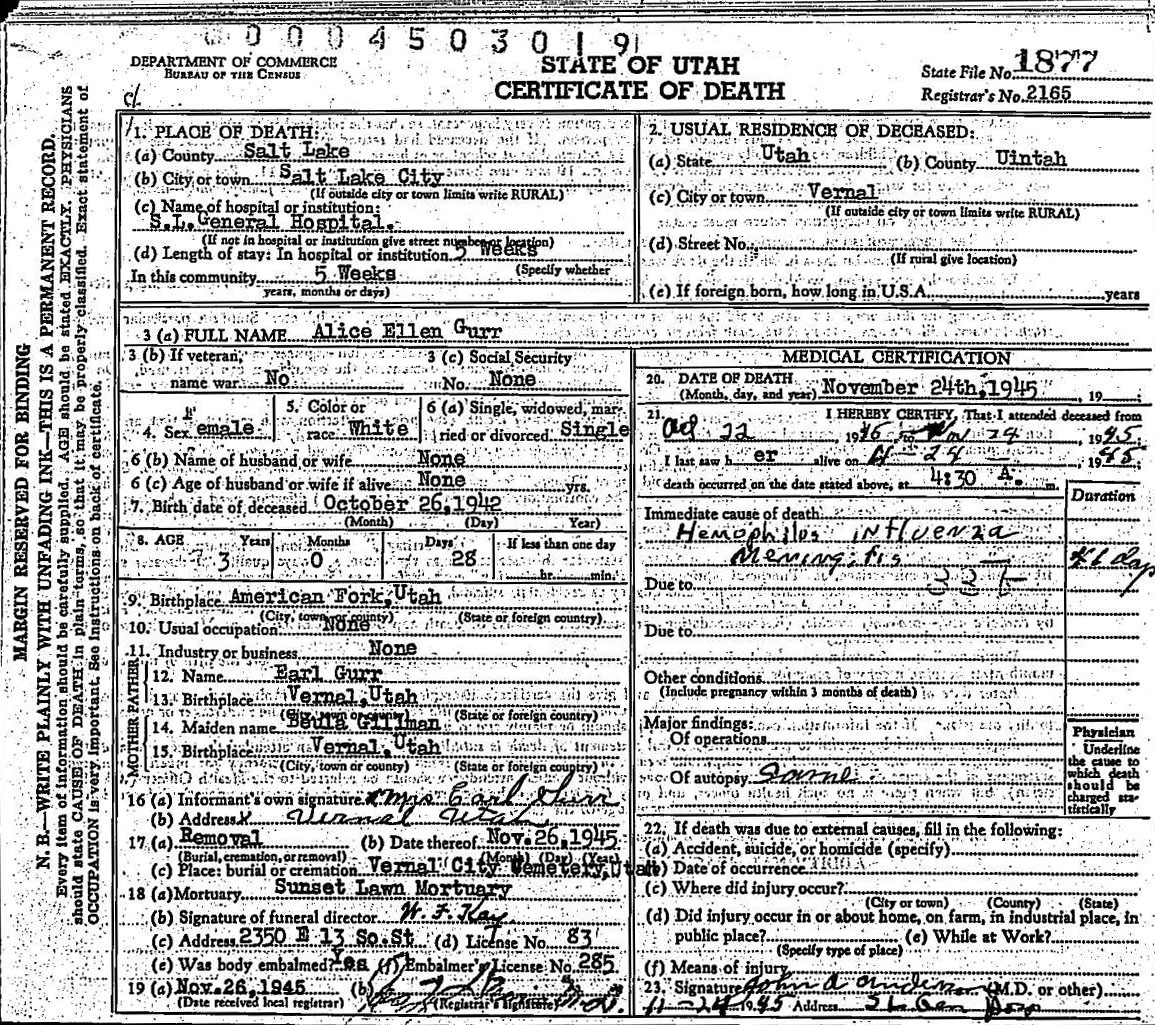 0004503019
DEPARTMENT OF COMMERCE
BUREAU OF THE CENSUS
STATE OF UTAH
CERTIFICATE OF DEATH
State File No. 1877
Registrar's No. 2165
MARGIN RESERVED FOR BINDING
N. B.—WRITE PLAINLY WITH UNFADING INK—THIS IS A PERMANENT RECORD.
Every item of information should be carefully supplied. AGE should be stated EXACTLY. PHYSICIANS
should state CAUSE OF DEATH in plain terms, so that it may be properly classified. Exact statement of
OCCUPATION is very important. See instructions on back of certificate.
1. PLACE OF DEATH:
(a) County Salt Lake
(b) City or town Salt Lake City
(If outside city or town limits write RURAL)
(c) Name of hospital or institution:
S.L.General Hospital.
(If not in hospital or institution give street number or location)
(d) Length of stay: In hospital or institution 5 Weeks
(Specify whether
In this community 5 Weeks
years, months or days)
2. USUAL RESIDENCE OF DECEASED:
(a) State Utah (b) County Uintah
(c) City or town Vernal
(If outside city or town limits write RURAL)
(d) Street No.
(If rural give location)
(e) If foreign born, how long in U.S.A. years
3 (a) FULL NAME Alice Ellen Gurr
3 (b) If veteran, name war No
3 (c) Social Security No. None
4. Sex Female
5. Color or race White
6 (a) Single, widowed, married or divorced Single
6 (b) Name of husband or wife None
6 (c) Age of husband or wife if alive None yrs.
7. Birth date of deceased October 26,1942
(Month) (Day) Year)
8. AGE Years Months Days If less than one day
3 0 28 hr. min.
9. Birthplace American Fork,Utah
(City, town or county) (State or foreign country)
10. Usual occupation None
11. Industry or business None
FATHER
12. Name Earl Gurr
13. Birthplace Vernal,Utah
(State or foreign country)
MOTHER
14. Maiden name Beula Gillman
15. Birthplace Vernal,Utah
(City, town or county) (State or foreign country)
16 (a) Informant's own signature x Mrs Earl Gurr
(b) Address x Vernal Utah
17 (a) Removal (b) Date thereof Nov.26,1945
(Burial, cremation, or removal) (Month) (Day) (Year)
(c) Place: burial or cremation Vernal City Cemetery,Utah
18 (a) Mortuary Sunset Lawn Mortuary
(b) Signature of funeral director W. F. Kay
(c) Address 2350 E 13 So.St (d) License No. 83
(e) Was body embalmed? Yes (f) Embalmer's License No. 285
19 (a) Nov.26,1945 (b)
(Date received local registrar) (Registrar's signature)
MEDICAL CERTIFICATION
20. DATE OF DEATH
(Month, day, and year) November 24th,1945 , 19
21. I HEREBY CERTIFY, That I attended deceased from
22 , 19 to Nov 24 , 1945;
I last saw h er alive on 24 , 1945
death occurred on the date stated above, at 4:30 A. m.
Duration
Immediate cause of death
Hemophilos influenza
Meningitis days
Due to
Due to
Other conditions
(Include pregnancy within 3 months of death)
Major findings:
Of operations
Of autopsy Same
Physician
Underline
the cause to
which death
should be
charged sta-
tistically
22. If death was due to external causes, fill in the following:
(a) Accident, suicide, or homicide (specify)
(b) Date of occurrence
(c) Where did injury occur?
(City or town) (County) (State)
(d) Did injury occur in or about home, on farm, in industrial place, in
public place? (e) While at Work?
(Specify type of place)
(f) Means of injury
23. Signature John A Anderson (M.D. or other)
11-24 1945 Address SL Gen Hosp